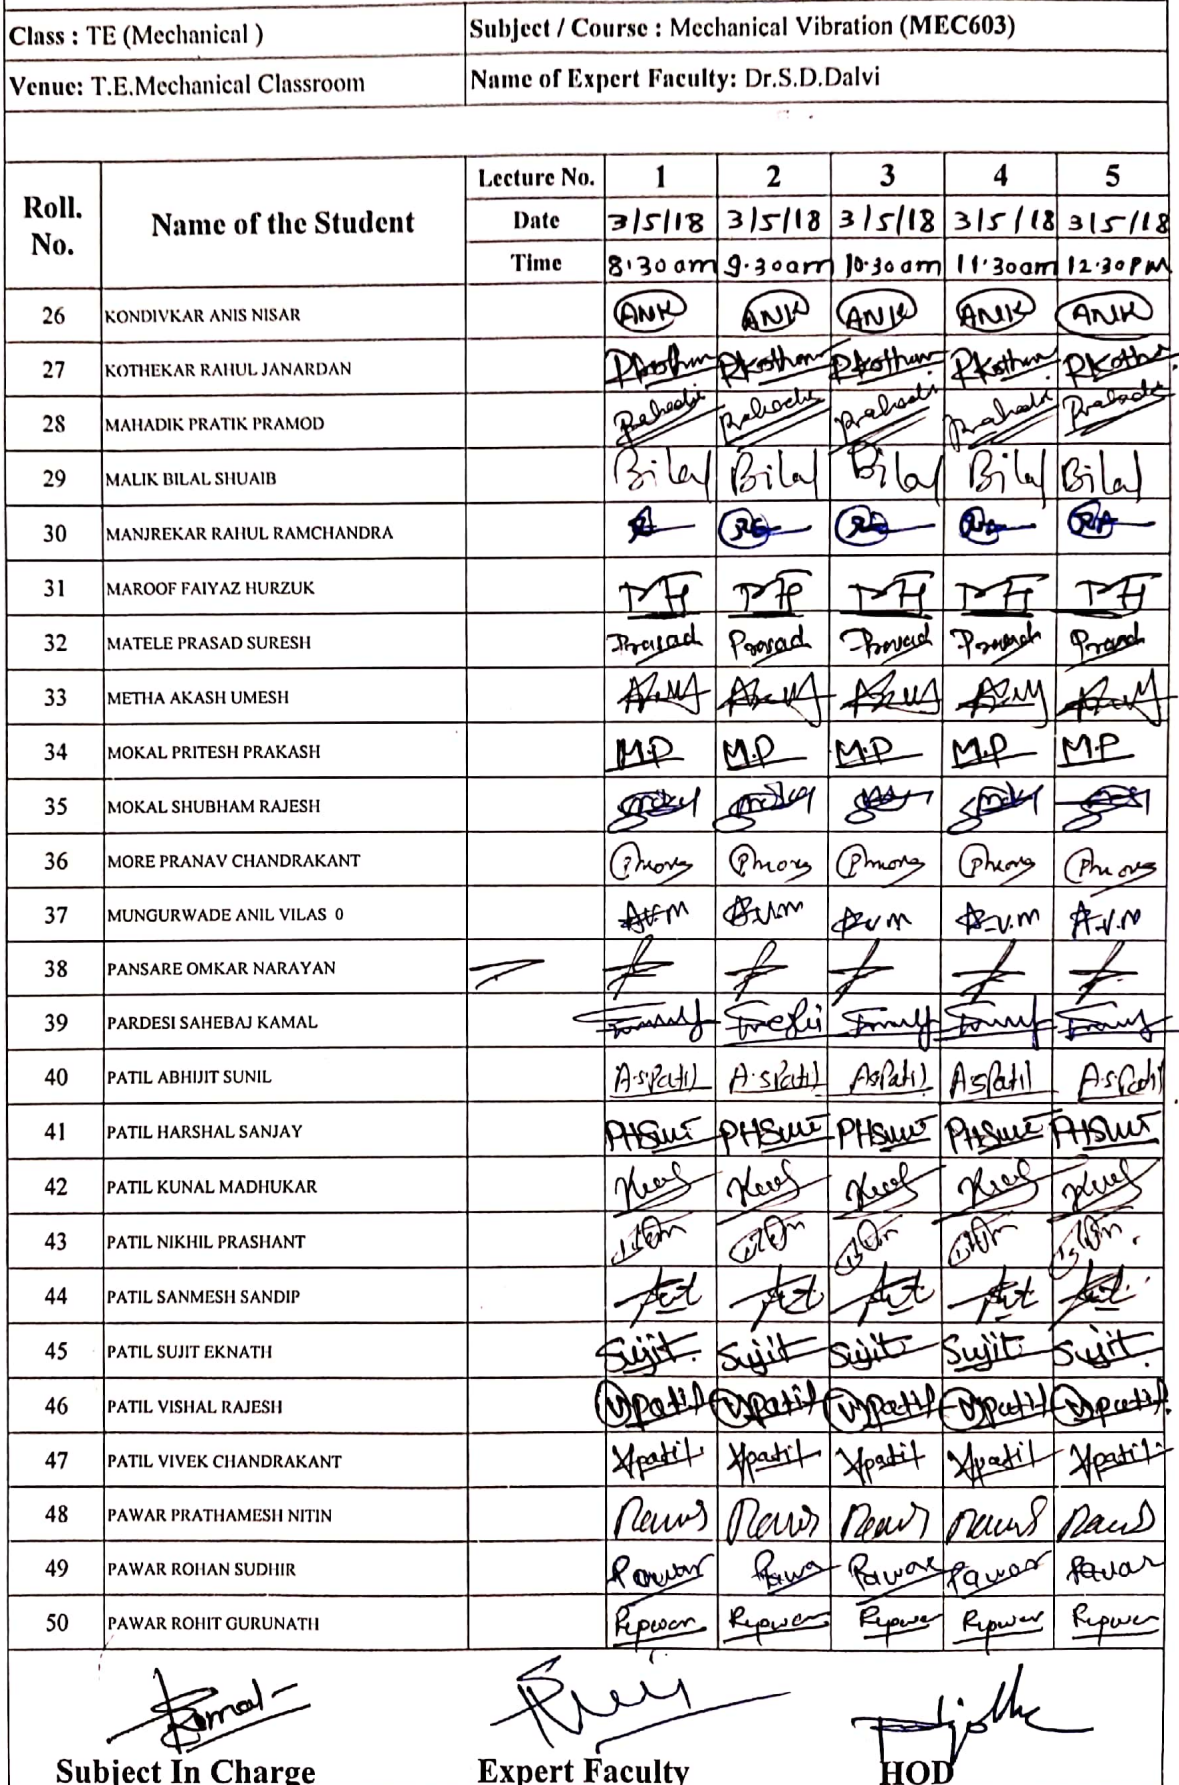 Class : TE (Mechanical )
Subject / Course : Mechanical Vibration (MEC603)
Venue: T.E.Mechanical Classroom
Name of Expert Faculty: Dr.S.D.Dalvi
Roll. No. Name of the Student Lecture No. 1 2 3 4 5
Date 3/5/18 3/5/18 3/5/18 3/5/18 3/5/18
Time 8.30am 9.30am 10.30am 11.30am 12.30PM
26 KONDIVKAR ANIS NISAR ANK ANK ANK ANK ANK
27 KOTHEKAR RAHUL JANARDAN
28 MAHADIK PRATIK PRAMOD
29 MALIK BILAL SHUAIB Bilal Bilal Bilal Bilal Bilal
30 MANJREKAR RAHUL RAMCHANDRA
31 MAROOF FAIYAZ HURZUK
32 MATELE PRASAD SURESH Prasad Prasad Prasad Prasad Prasad
33 METHA AKASH UMESH
34 MOKAL PRITESH PRAKASH M.P M.P M.P M.P M.P
35 MOKAL SHUBHAM RAJESH
36 MORE PRANAV CHANDRAKANT
37 MUNGURWADE ANIL VILAS 0 A.V.M A.V.m A.V.M A.V.M A.V.M
38 PANSARE OMKAR NARAYAN
39 PARDESI SAHEBAJ KAMAL
40 PATIL ABHIJIT SUNIL A.S.Patil A.SPatil ASPatil ASPatil A.S.Patil
41 PATIL HARSHAL SANJAY
42 PATIL KUNAL MADHUKAR
43 PATIL NIKHIL PRASHANT
44 PATIL SANMESH SANDIP
45 PATIL SUJIT EKNATH Sujit Sujit Sujit Sujit Sujit
46 PATIL VISHAL RAJESH Vpatil Vpatil Vpatil Vpatil Vpatil
47 PATIL VIVEK CHANDRAKANT Vpatil Vpatil Vpatil Vpatil Vpatil
48 PAWAR PRATHAMESH NITIN
49 PAWAR ROHAN SUDHIR Pawar Pawar Pawar Pawar Pawar
50 PAWAR ROHIT GURUNATH
Subject In Charge
Expert Faculty
HOD